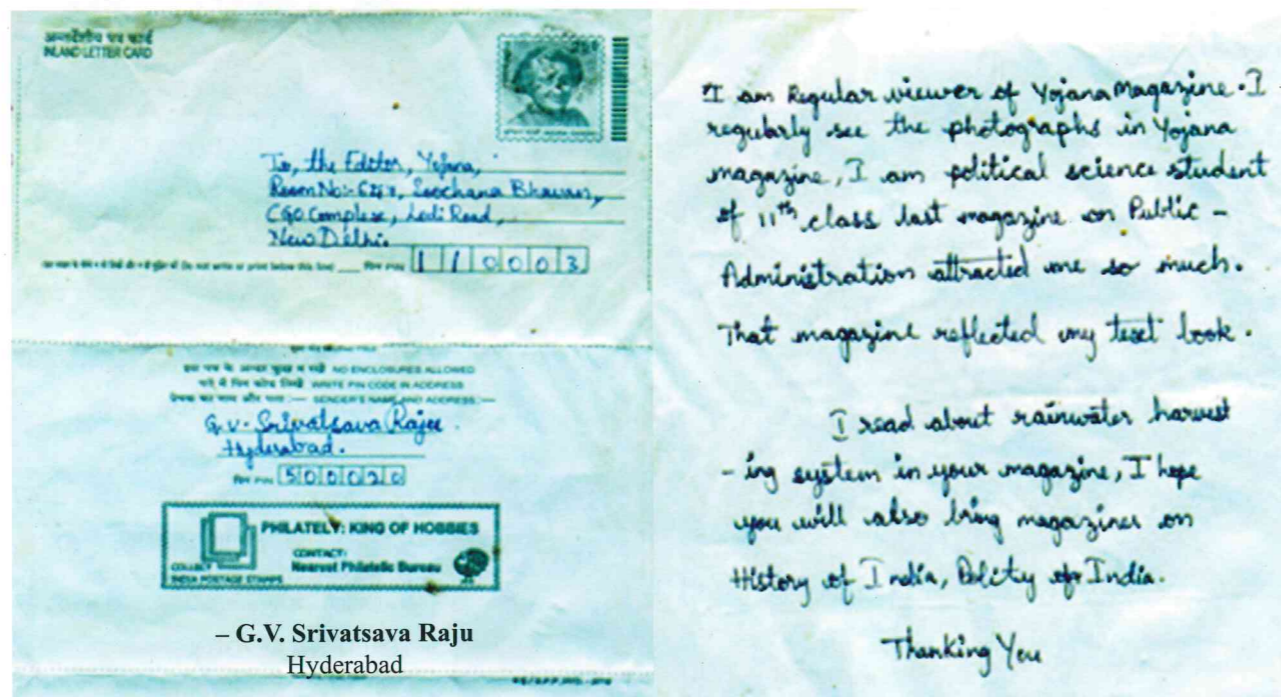 अन्तर्देशीय पत्र कार्ड
INLAND LETTER CARD
To, the Editor, Yojana,
Room No:- Soochana Bhawan,
CGO Complex, Lodi Road,
New Delhi.
(Do not write or print below this line) पिन PIN 110003
NO ENCLOSURES ALLOWED
पते में पिन कोड लिखें WRITE PIN CODE IN ADDRESS
SENDER'S NAME AND ADDRESS:—
G.V. Srivatsava Raju.
Hyderabad.
पिन PIN 500020
PHILATELY: KING OF HOBBIES
CONTACT:
Nearest Philatelic Bureau
COLLECT
INDIA POSTAGE STAMPS
– G.V. Srivatsava Raju
Hyderabad
I am Regular viewer of Yojana Magazine. I
regularly see the photographs in Yojana
magazine, I am political science student
of 11th class last magazine on Public -
Administration attracted me so much.
That magazine reflected my text book.
I read about rainwater harvest
- ing system in your magazine, I hope
you will also bring magazines on
History of India, Polity of India.
Thanking You